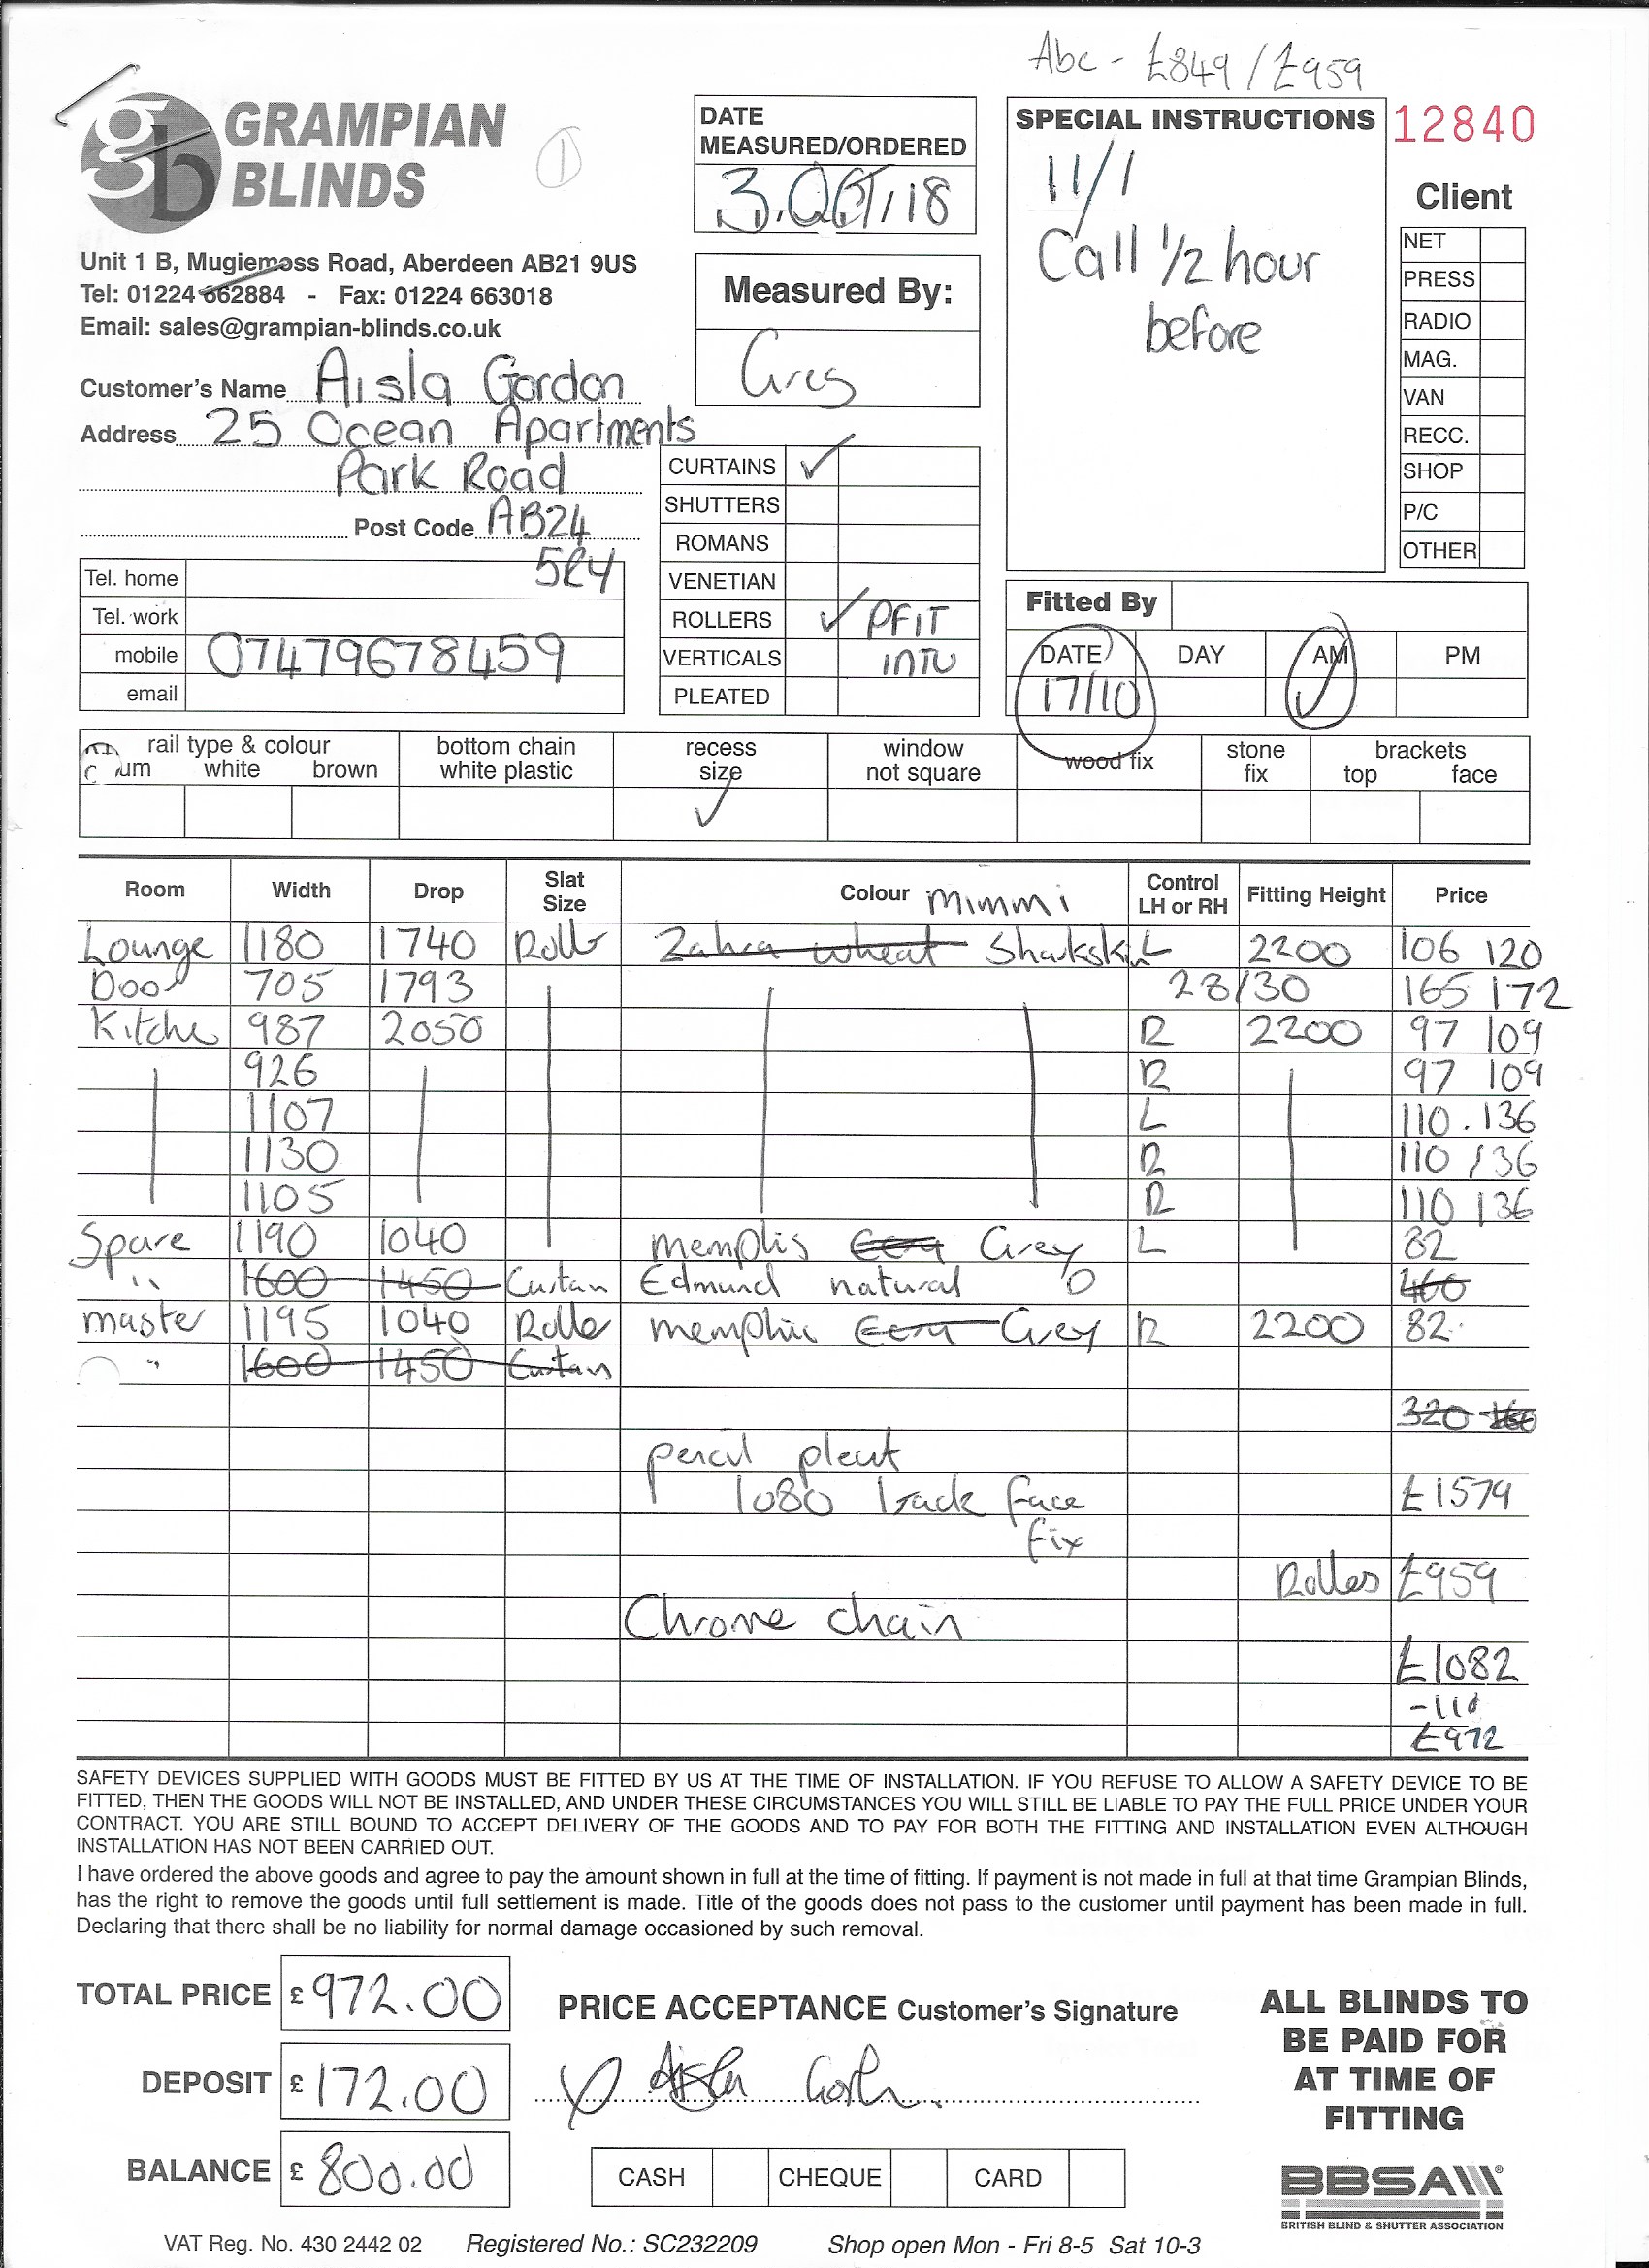 Abc - £849 / £959
GRAMPIAN
BLINDS
1
Unit 1 B, Mugiemoss Road, Aberdeen AB21 9US
Tel: 01224 662884 - Fax: 01224 663018
Email: sales@grampian-blinds.co.uk
Customer's Name Aisla Gordon
Address 25 Ocean Apartments
Park Road
Post Code AB24
5RY
Tel. home
Tel. work
mobile 07479678459
email
DATE
MEASURED/ORDERED
3.OCT.18
Measured By:
Greg
CURTAINS ✓
SHUTTERS
ROMANS
VENETIAN
ROLLERS ✓ PFIT
VERTICALS INTU
PLEATED
SPECIAL INSTRUCTIONS
11/1
Call 1/2 hour
before
12840
Client
NET
PRESS
RADIO
MAG.
VAN
RECC.
SHOP
P/C
OTHER
Fitted By
DATE DAY AM PM
17/10 ✓
rail type & colour bottom chain recess window wood fix stone brackets
um white brown white plastic size not square fix top face
✓
Room Width Drop Slat Size Colour Mimmi Control LH or RH Fitting Height Price
Lounge 1180 1740 Roller Zahra wheat Sharkskin L 2200 106 120
Door 705 1793 28/30 165 172
Kitche 987 2050 R 2200 97 109
926 R 97 109
1107 L 110 . 136
1130 R 110 136
1105 R 110 136
Spare 1190 1040 Memphis Grey L 82
" 1600 1450 Curtain Edmund natural 460
Master 1195 1040 Roller Memphis Grey R 2200 82
" 1600 1450 Curtain
320
pencil pleat
1080 track face £1579
fix
Rolles £959
Chrome chain
£1082
-110
£972
SAFETY DEVICES SUPPLIED WITH GOODS MUST BE FITTED BY US AT THE TIME OF INSTALLATION. IF YOU REFUSE TO ALLOW A SAFETY DEVICE TO BE
FITTED, THEN THE GOODS WILL NOT BE INSTALLED, AND UNDER THESE CIRCUMSTANCES YOU WILL STILL BE LIABLE TO PAY THE FULL PRICE UNDER YOUR
CONTRACT. YOU ARE STILL BOUND TO ACCEPT DELIVERY OF THE GOODS AND TO PAY FOR BOTH THE FITTING AND INSTALLATION EVEN ALTHOUGH
INSTALLATION HAS NOT BEEN CARRIED OUT.
I have ordered the above goods and agree to pay the amount shown in full at the time of fitting. If payment is not made in full at that time Grampian Blinds,
has the right to remove the goods until full settlement is made. Title of the goods does not pass to the customer until payment has been made in full.
Declaring that there shall be no liability for normal damage occasioned by such removal.
TOTAL PRICE £ 972.00
DEPOSIT £ 172.00
BALANCE £ 800.00
PRICE ACCEPTANCE Customer's Signature
CASH CHEQUE CARD
ALL BLINDS TO
BE PAID FOR
AT TIME OF
FITTING
BBSA
BRITISH BLIND & SHUTTER ASSOCIATION
VAT Reg. No. 430 2442 02 Registered No.: SC232209 Shop open Mon - Fri 8-5 Sat 10-3